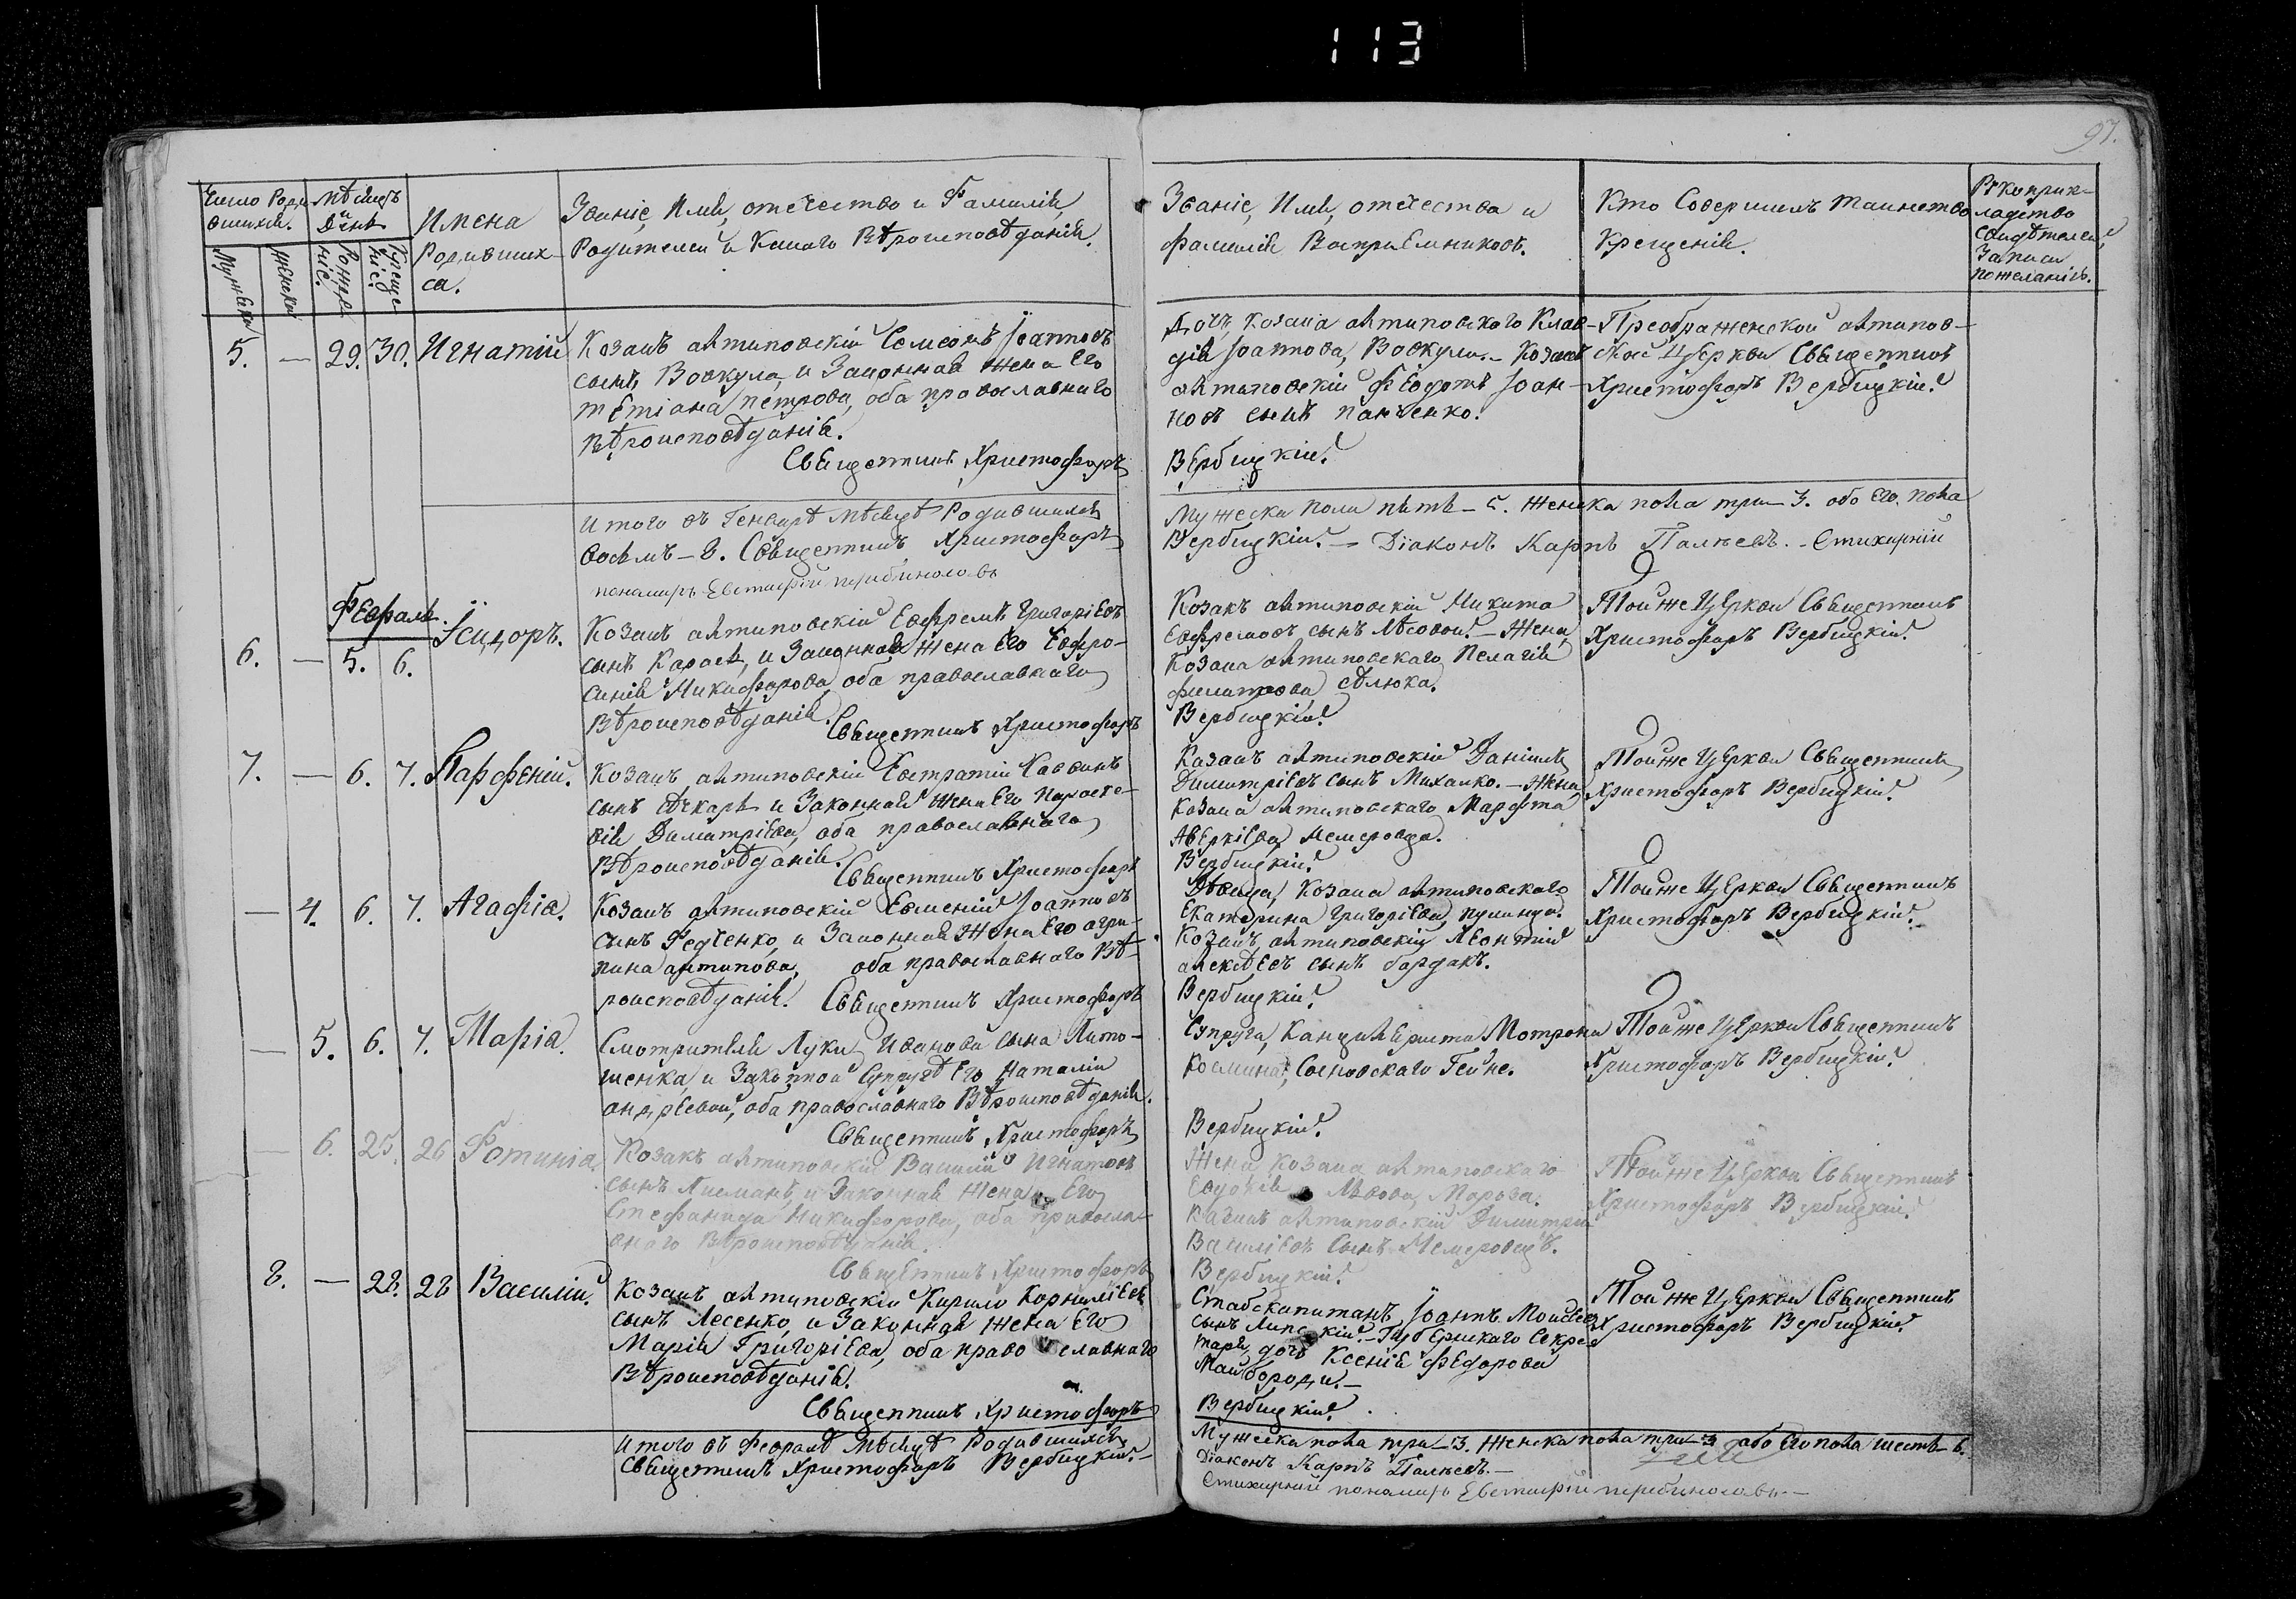 113
97.
Число Роди-
вшихся.
Мѣсяцъ
и
День
Мужеска
Женска
Рожде-
ніе.
Креще-
ніе.
Имена
Родивших-
ся.
Званіе, Имя, отечество и Фамилія
Родителей и Какаго Вѣроисповѣданія.
Званіе, Имя, отечества и
фамилія Воспріемниковъ.
Кто Совершилъ таинство
Крещенія.
Рукоприк-
ладство
Свидѣтелей
Записи
пожеланію.
5. — 29. 30. Игнатій
Козакъ Антиповскій Семеонъ Іоанновъ
сынъ Вовкула, и Законная Жена Его
тетіана петрова, оба православнаго
Вѣроисповѣданія.
Священникъ Христофоръ
Дочь, Козака Антиповского Клав-
дія Іоаннова, Вовкула. Козакъ
Антиповскій Феодотъ Іоан-
новъ сынъ панченко.
Вербицкій.
Преображенской Антипов-
ской Церкви Священникъ
Христофоръ Вербицкій.
Итого въ Генварѣ Мѣсяцѣ Родившихся
восемъ — 8. Священникъ Христофоръ
пономарь Евстафій
Мужеска пола пять — 5. Женска пола три — 3. обо Его пола
Вербицкій. — Діаконъ Карпъ. — Стихарній
Февраль.
6. — 5. 6. Ісидоръ.
Козакъ Антиповскій Евфремъ Григоріевъ
сынъ Карась, и Законная Жена Его Евфро-
синія Никифорова, оба православнаго
Вѣроисповѣданія. Священникъ Христофоръ
Козакъ Антиповскій Никита
Евфремовъ сынъ Лѣсовой. — Жена
Козака Антиповскаго Пелагія
филипова
Вербицкій.
Той же Церкви Священникъ
Христофоръ Вербицкій.
7. — 6. 7. Парфеній.
Козакъ Антиповскій Евстратій Саввинъ
сынъ и Законная Жена Его Параске-
вія Димитріева, оба православнаго
Вѣроисповѣданія. Священникъ Христофоръ
Козакъ Антиповскій Даніилъ
Димитріевъ сынъ Михалко. — Жена
Козака Антиповскаго Марфта
Аверкіева,
Вербицкій.
Той же Церкви Священникъ
Христофоръ Вербицкій.
— 4. 6. 7. Агафіа.
Козакъ Антиповскій Евменій Іоанновъ
сынъ Федченко, и Законная Жена Его агри-
пина антипова, оба православнаго Вѣ-
роисповѣданія. Священникъ Христофоръ
Дѣвица, Козака Антиповскаго
Екатерина Григоріева,
Козакъ Антиповскій Леонтій
алексѣевъ сынъ бардакъ.
Вербицкій.
Той же Церкви Священникъ
Христофоръ Вербицкій.
— 5. 6. 7. Маріа.
Смотрителя Луки Иванова сына Лито-
шенка, и Законной Супругѣ Его Наталіи
андреевой, оба православнаго Вѣроисповѣданія.
Священникъ Христофоръ
Супруга, Канцеляриста Мотрона
Космина,
Вербицкій.
Той же Церкви Священникъ
Христофоръ Вербицкій.
— 6. 25. 26 Фотиніа
Козакъ Антиповскій Василій Игнатовъ
сынъ Лисманъ, и Законная Жена Его
Стефанида Никифорова, оба правосла-
внаго Вѣроисповѣданія.
Священникъ Христофоръ
Жена Козака Антиповскаго
Евдокія Львова,
Козакъ Антиповскій Димитрій
Василіевъ Сынъ
Вербицкій.
Той же Церкви Священникъ
Христофоръ Вербицкій.
8. — 28. 28 Василій.
Козакъ Антиповскій Кирило Корниліевъ
сынъ Лесенко, и Законная Жена Его
Марія Григоріева, оба православнаго
Вѣроисповѣданія.
Священникъ Христофоръ
Стабскапитанъ Іоаннъ Моисеевъ
сынъ Липскій. — Губернскаго Секре-
таря, дочь Ксенія Федорова
Майбороди. —
Вербицкій.
Той же Церкви Священникъ
Христофоръ Вербицкій.
Итого въ Февралѣ Мѣсяцѣ Родившихся
Священникъ Христофоръ Вербицкій. —
Мужеска пола три — 3. Женска пола три — 3 обо Его пола шесть — 6.
Діаконъ Карпъ. —
Стихарній пономарь Евстафій